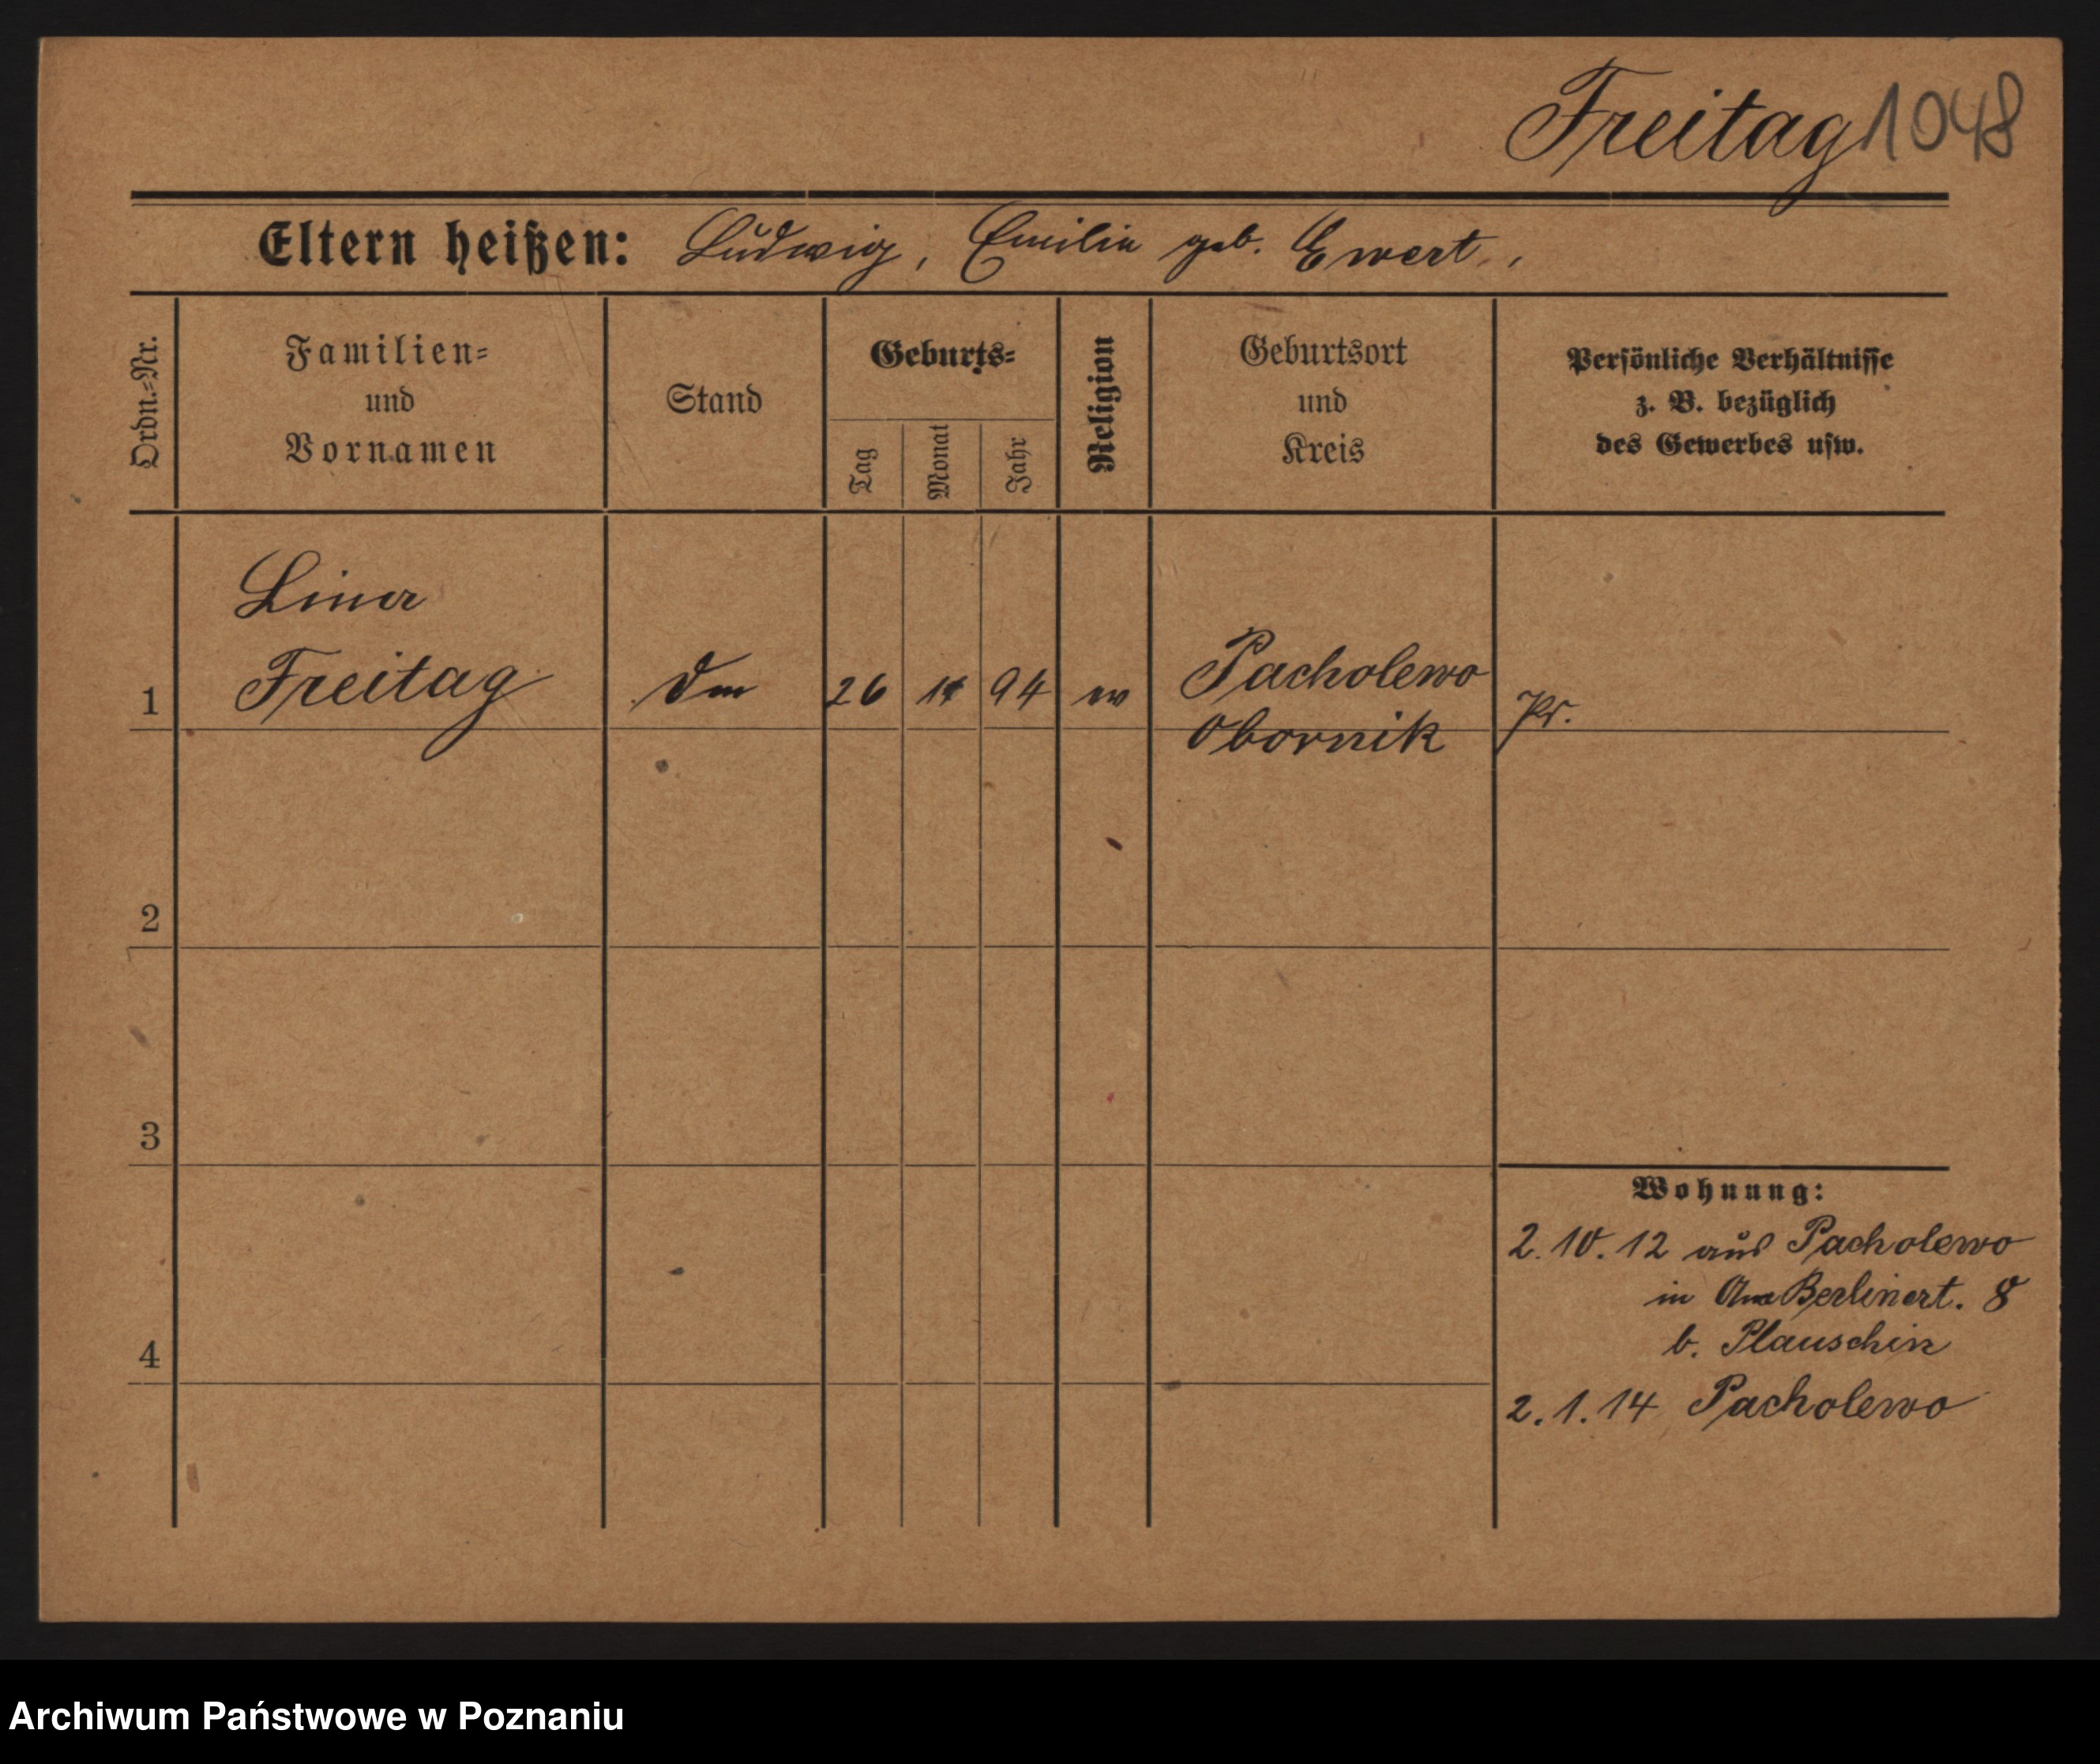 Freitag 1048
Eltern heißen: Ludwig, Emilie geb. Ewert.,
Ordn.=Nr.
Familien=
und
Vornamen
Stand
Geburts=
Tag
Monat
Jahr
Religion
Geburtsort
und
Kreis
Persönliche Verhältnisse
z. B. bezüglich
des Gewerbes usw.
Lina
1 Freitag 26 94 ev Pacholewo Pr.
Obornik
2
3
Wohnung:
2.10.12 aus Pacholewo
in Berlinerst. 8
b. Plauschin
4
2.1.14 Pacholewo
Archiwum Państwowe w Poznaniu